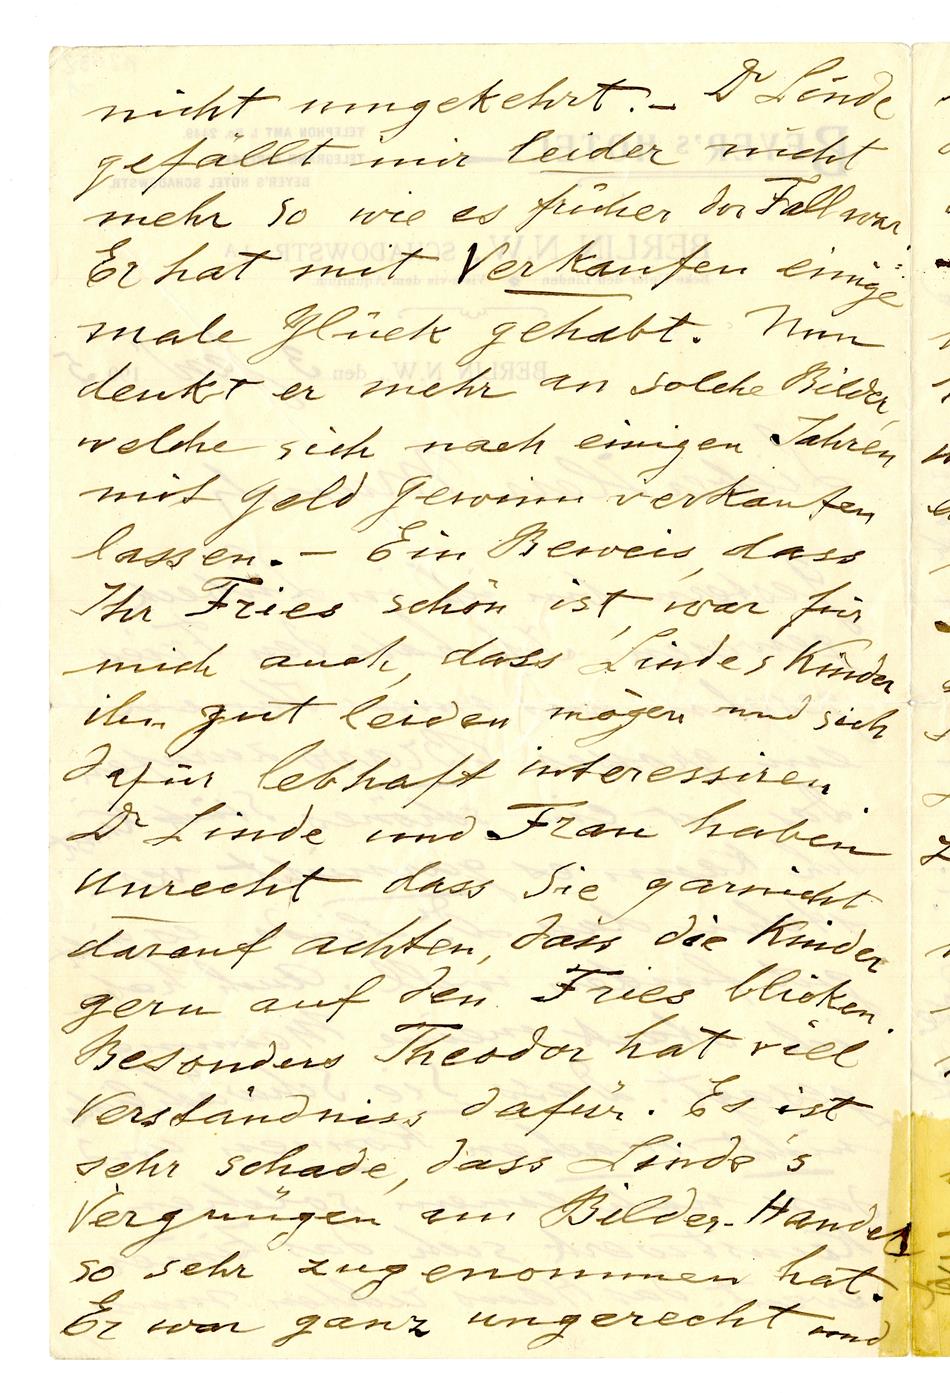 nicht umgekehrt. – Dr Linde
gefällt mir leider nicht
mehr so wie es früher der Fall war.
Er hat mit Verkaufen einige
male Glück gehabt. Nun
denkt er mehr an solche Bilder,
welche sich nach einigen Jahren
mit Geld Gewinn verkaufen
lassen. – Ein Beweis, dass
Ihr Fries schön ist, war für
mich auch, dass Lindes Kinder
ihn gut leiden mögen und sich
dafür lebhaft interessiren
Dr Linde und Frau haben
unrecht dass Sie garnicht
darauf achten, dass die Kinder
gern auf den Fries blicken.
Besonders Theodor hat viel
Verständniss dafür. Es ist
sehr schade, dass Linde's
Vergnügen am Bilder-Handel
so sehr zugenommen hat.
Er war ganz ungerecht und